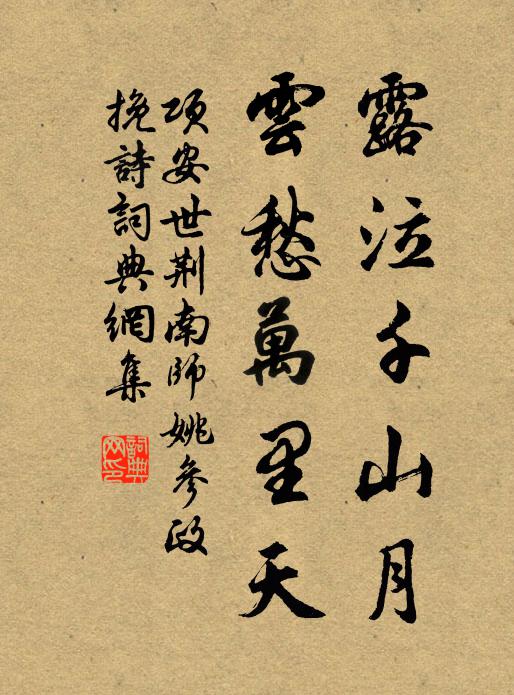 露泣千山月
雲愁萬里天
項安世荆南師姚參政
挽詩詞典網集
詞典
网印